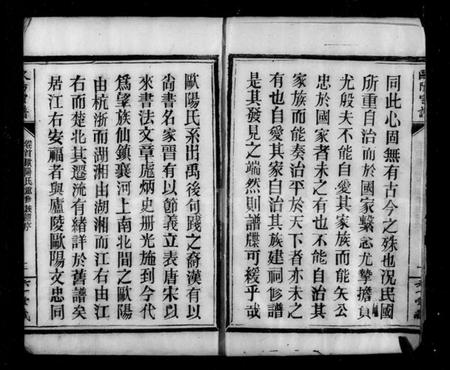 同此心固無有古今之殊也況民國
所重自治而於國家繫念尤摯擔負
尤殷夫不能自愛其家族而能矢公
忠於國家者未之有也不能自治其
家族而能奏治平於天下者亦未之
有也自愛其家自治其族建祠修譜
是其發見之端然則譜牒可緩乎哉
歐陽氏系出禹後句踐之裔漢有以
尚書名家晉有以節義立表唐宋以
來書法文章處炳史册光施到今代
為望族仙鎮襄河上南北間之歐陽
由杭浙而湖湘由湖湘而江右由江
右而楚北其遷流有緒詳於舊譜矣
居江右安福者與廬陵歐陽文忠同